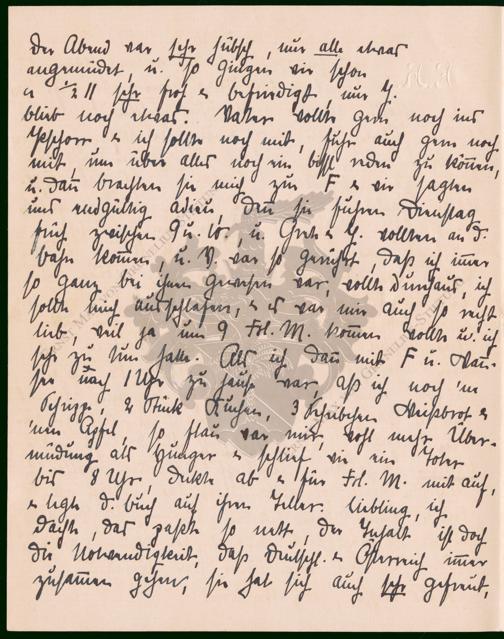 Der Abend war sehr hübsch, nur alle etwas
angemüdet, u. so gingen wir schon
½ 11 sehr froh & befriedigt, nur
blieb noch etwas. Vater wollte gern noch ins
& ich sollte noch mit, fuhr auch gern noch
mit, um über alles noch ein bissl reden zu können,
u. dann brachten sie mich zu F & wir sagten
uns endgültig adieu, denn sie fuhren Dienstag
früh zwischen 9 u. 10, u. Grete & wollten an d.
bahn kommen, u. V. war so gerührt, daß ich immer
so ganz bei ihnen gewesen war, wollte durchaus, ich
sollte mich ausschlafen, & es war mir auch so recht
lieb, weil ja um 9 Frl. M. kommen wollte u. ich
sehr zu tun hatte. Als ich dann mit F u.
nach 1 Uhr zu hause war, aß ich noch 'n
2 Stück Kuchen, 3 Scheibchen Weißbrot &
'nen Apfel, so flau war mir, wohl mehr Über-
müdung als Hunger & schlief wie ein Toter
bis 8 Uhr, deckte ab & für Frl. M. mit auf,
& legte d. buch auf ihren Teller. Liebling, ich
dachte, das paßte so nett, der Inhalt ist doch
die Notwendigkeit, daß Deutschl. & Österreich immer
zusammen gehen, sie hat sich auch sehr gefreut,